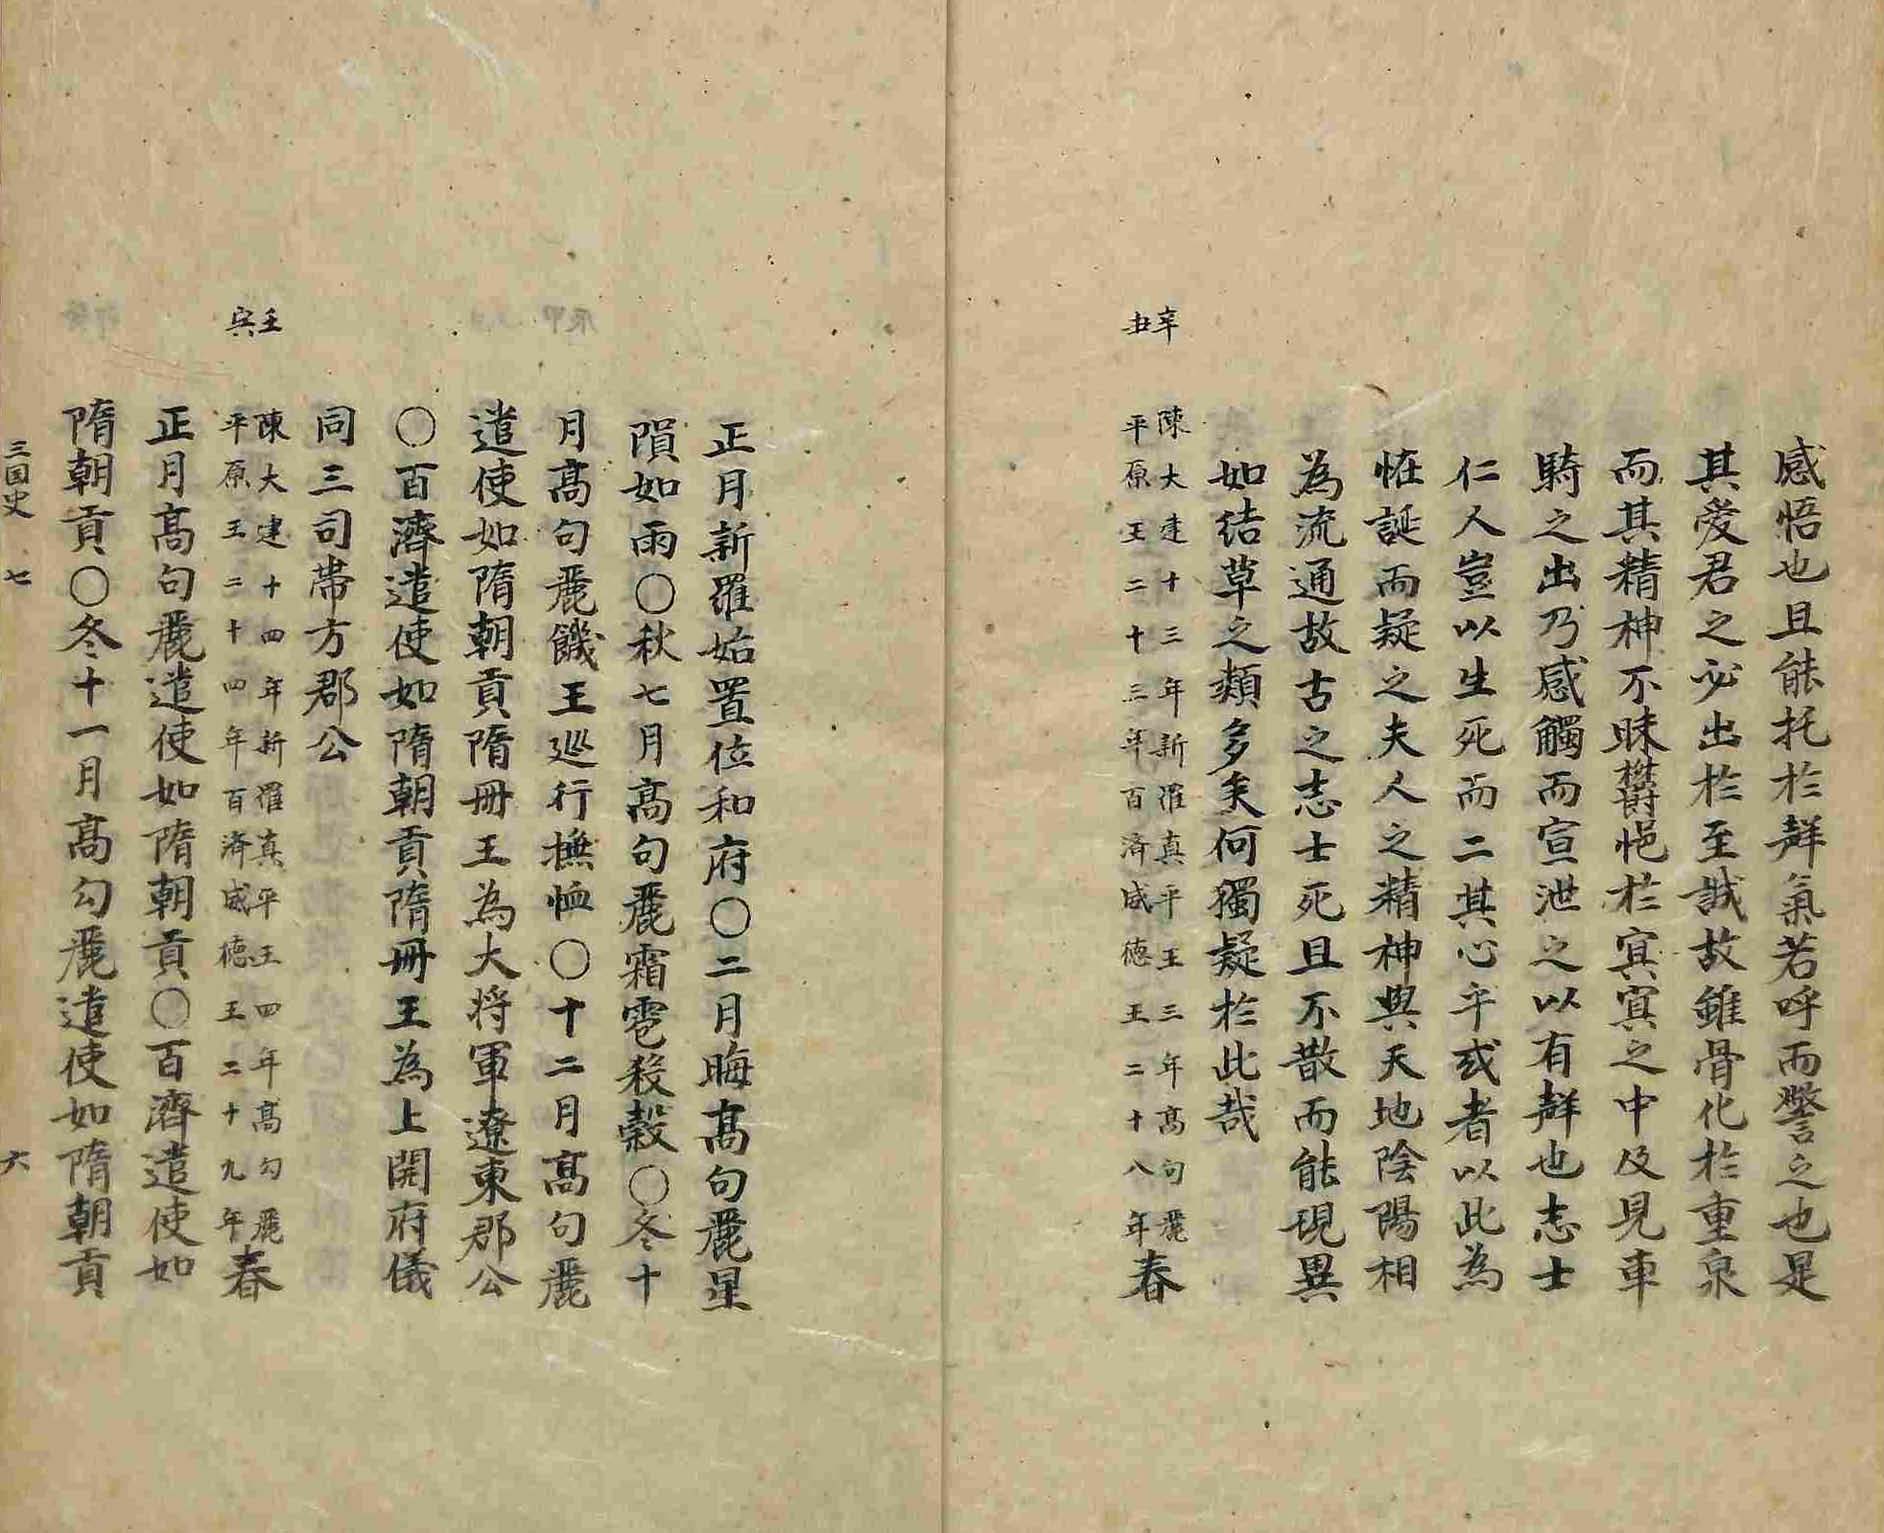 感悟也且能托於聲氣若呼而警之也是
其愛君之必出於至誠故雖骨化於重泉
而其精神不昧欝悒於冥冥之中及見車
騎之出乃感觸而宣泄之以有聲也志士
仁人豈以生死而二其心乎或者以此為
恠誕而疑之夫人之精神與天地陰陽相
為流通故古之志士死且不散而能現異
如结草之類多矣何獨疑於此哉
辛丑
陳大建十三年新羅真平王三年高句麗
平原王二十三年百濟威德王二十八年春
正月新羅始置位和府〇二月晦高句麗星
隕如雨〇秋七月高句麗霜雹殺穀〇冬十
月高句麗饑王巡行撫恤〇十二月高句麗
遣使如隋朝貢隋冊王為大将軍遼東郡公
〇百濟遣使如隋朝貢隋冊王為上開府儀
同三司帯方郡公
壬寅
陳大建十四年新羅真平王四年高勾麗
平原王二十四年百濟威德王二十九年春
正月高句麗遣使如隋朝貢〇百濟遣使如
隋朝貢〇冬十一月高勾麗遣使如隋朝貢
三国史 七 六